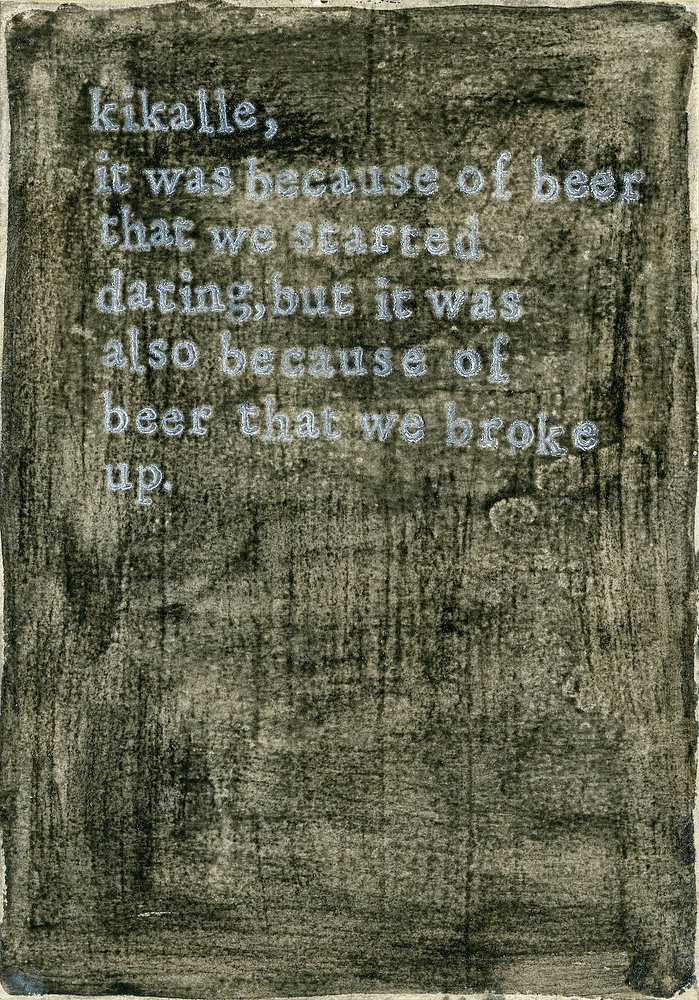 kikalle,
it was because of beer
that we started
dating, but it was
also because of
beer that we broke
up.